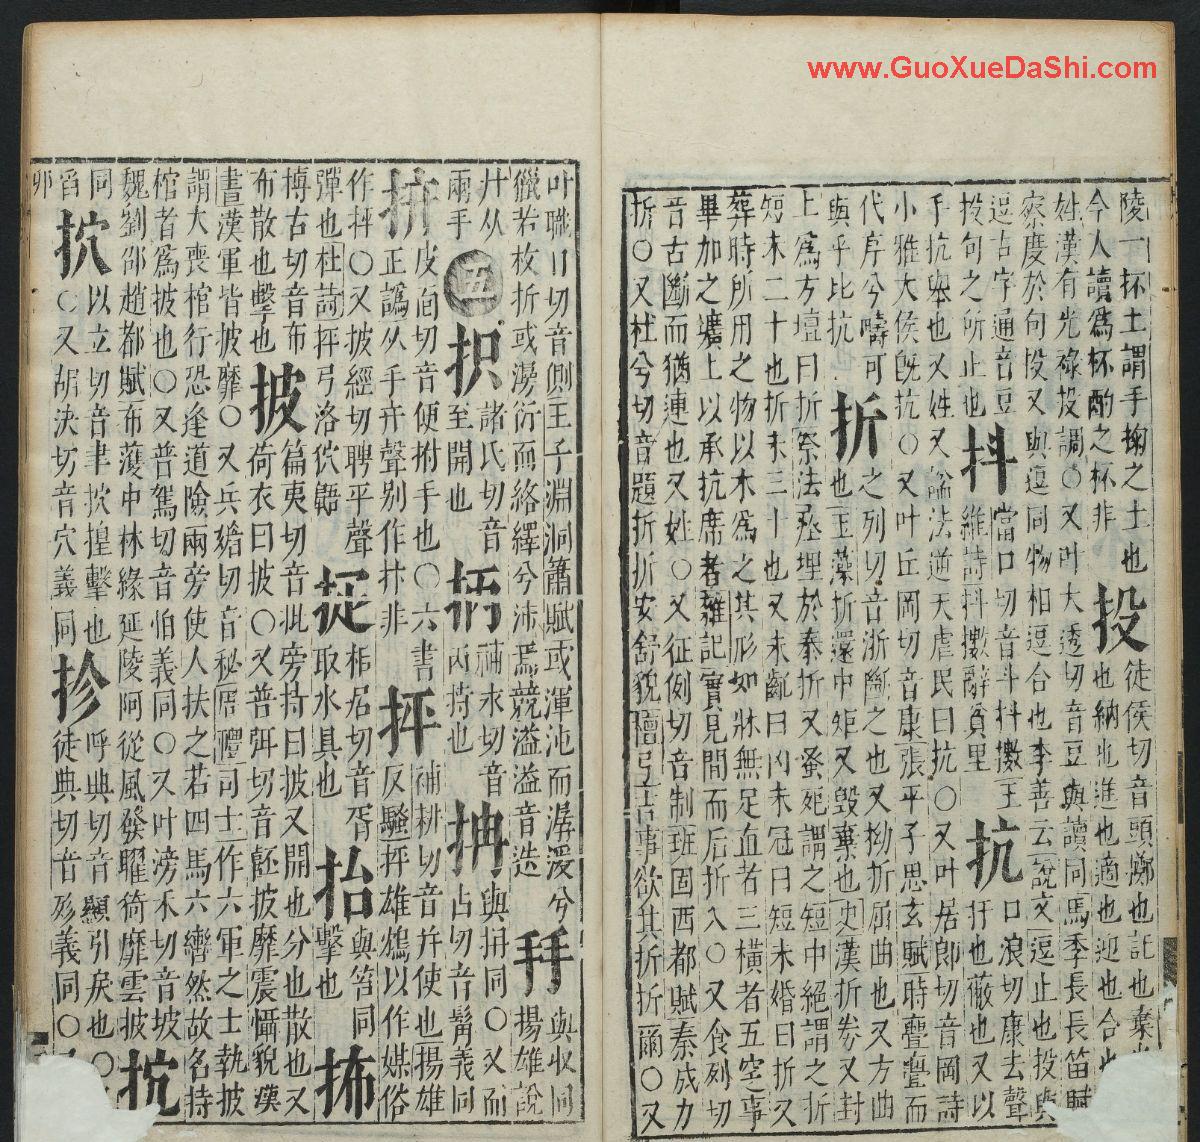 陵一抔土謂手掬之土也
今人讀爲杯酌之杯非
投
徒侯切音頭擲也託也棄
也納也進也適也迎也合也
姓漢有光祿投調○又叶大透切音豆與讀同馬季長長笛賦
察度於句投又與逗同物相逗合也李善云說文逗止也投與
逗古字通音豆
投句之所止也
抖
當口切音斗抖擻王
維詩抖擻辭貧里
抗
口浪切康去聲
扞也蔽也又以
手抗舉也又姓又諡法逆天虐民曰抗○又叶居郎切音岡詩
小雅大侯旣抗○又叶丘岡切音康張平子思玄賦時亹亹而
代序兮疇可
與乎比抗
折
之列切音浙斷之也又拗折屈曲也又方曲
也玉藻折還中矩又毀棄也史漢折券又封
上爲方壇曰折祭法瘞埋於泰折又蚤死謂之短中絕謂之折
短未二十也折未三十也又未齔曰凶未冠曰短未婚曰折又
葬時所用之物以木爲之其形如牀無足血者三橫者五空事
畢加之壙上以承抗席者雜記實見間而后折入○又食列切
音古斷而猶連也又姓○又征例切音制班固西都賦秦成力
折○又杜兮切音題折折安舒貌檀弓吉事欲其折折爾○又
叶職日切音側王子淵洞簫賦或渾沌而潺湲兮
獵若枚折或漫衍而絡繹兮沛焉競溢溢音迭
與収同
揚雄說
廾从
兩手
五
抧
諸氏切音
至開也
抦
補永切音
丙持也
抩
與抩同○又而
占切音髯義同
拚
皮面切音便拊手也○六書
正譌从手弁聲别作抃非
抨
補耕切音幷使也揚雄
反騷抨雄鴆以作媒俗
作抨○又披經切聘平聲
彈也杜詩抨弓洛
相居切音胥
取水具也
抬
與笞同
擊也
抪
博古切音布
布散也擊也
披
篇夷切音紕旁持曰披又開也分也散也又
荷衣曰披○又普弭切音披靡震懾貌漢
書漢軍皆披靡○又兵媚切音秘周禮司士作六軍之士執披
謂大喪棺行恐逢道險兩旁使人扶之若四馬六轡然故名持
棺者爲披也○又普駕切音怕義同○又叶滂禾切音坡
魏劉邵趙都賦布濩中林緣延陵阿從風發曜猗靡雲披
抭
同
舀
以立切音聿揘擊也
○又胡決切音穴義同
抮
呼典切音顯引戾也○
徒典切音殄義同○
卯
www.GuoXueDaShi.com